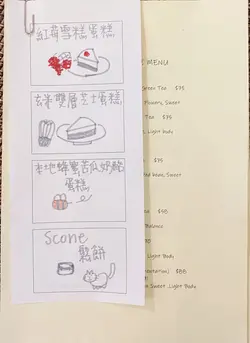 紅莓雪糕蛋糕
玄米雙層芝士蛋糕
本地蜂蜜苦瓜奶酪
蛋糕
Scone
鬆餅
MENU
Green Tea $75
Flowery, Sweet
Tea $75
Light body
$75
Sweet
Balance
Light Body
$88
Sweet, Light Body